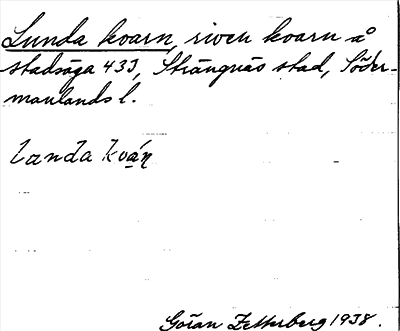 Lunda kvarn, riven kvarn å
stadsäga 433, Strängnäs stad, Söder-
manlands l.
Landa kván
Göran Zetterberg 1938.